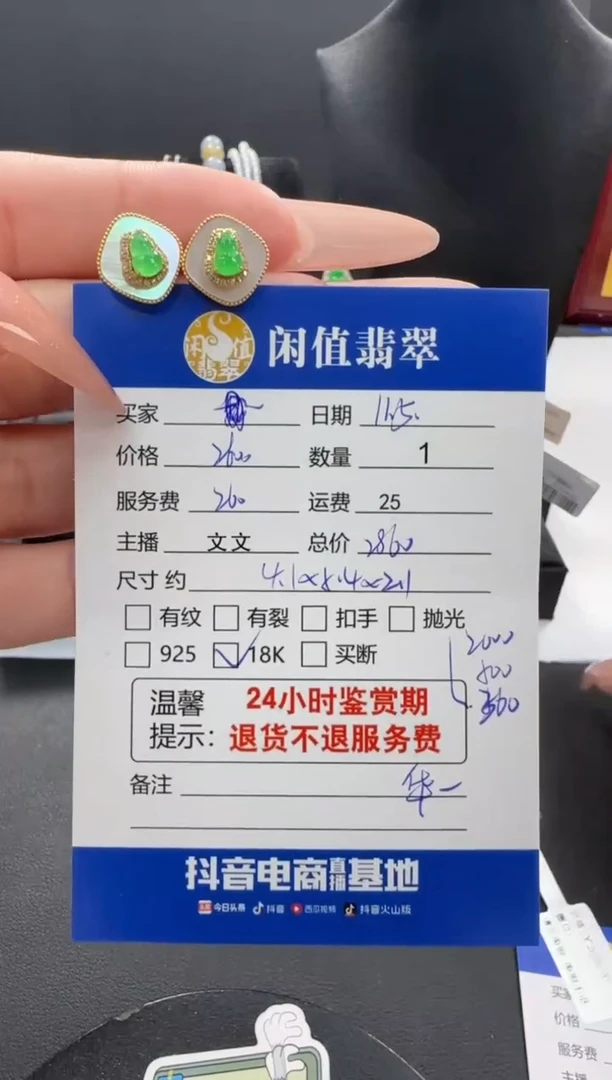 闲值翡翠
闲值翡翠
买家 日期 11.5.
价格 2600 数量 1
服务费 260 运费 25
主播 文文 总价 2860
尺寸 约
有纹 有裂 扣手 抛光
925 18K 买断
2000
温馨提示：
24小时鉴赏期
退货不退服务费
备注 华一
抖音电商直播基地
头条 今日头条 抖音 西瓜视频 抖音火山版
价格
服务费
主播